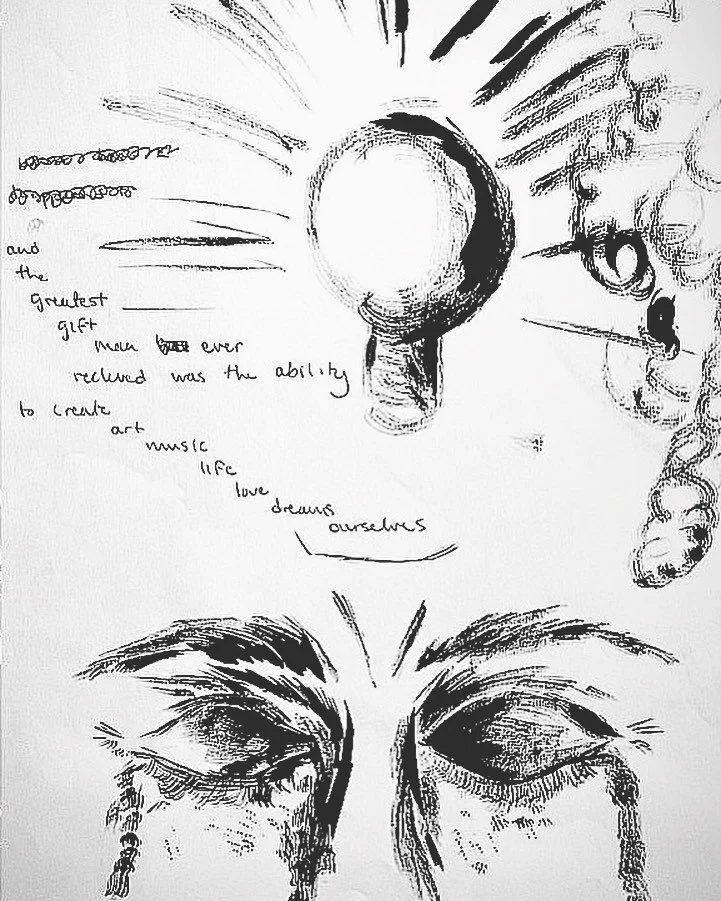 and
the
greatest
gift
man ever
recieved was the ability
to create
art
music
life
love
dreams
ourselves